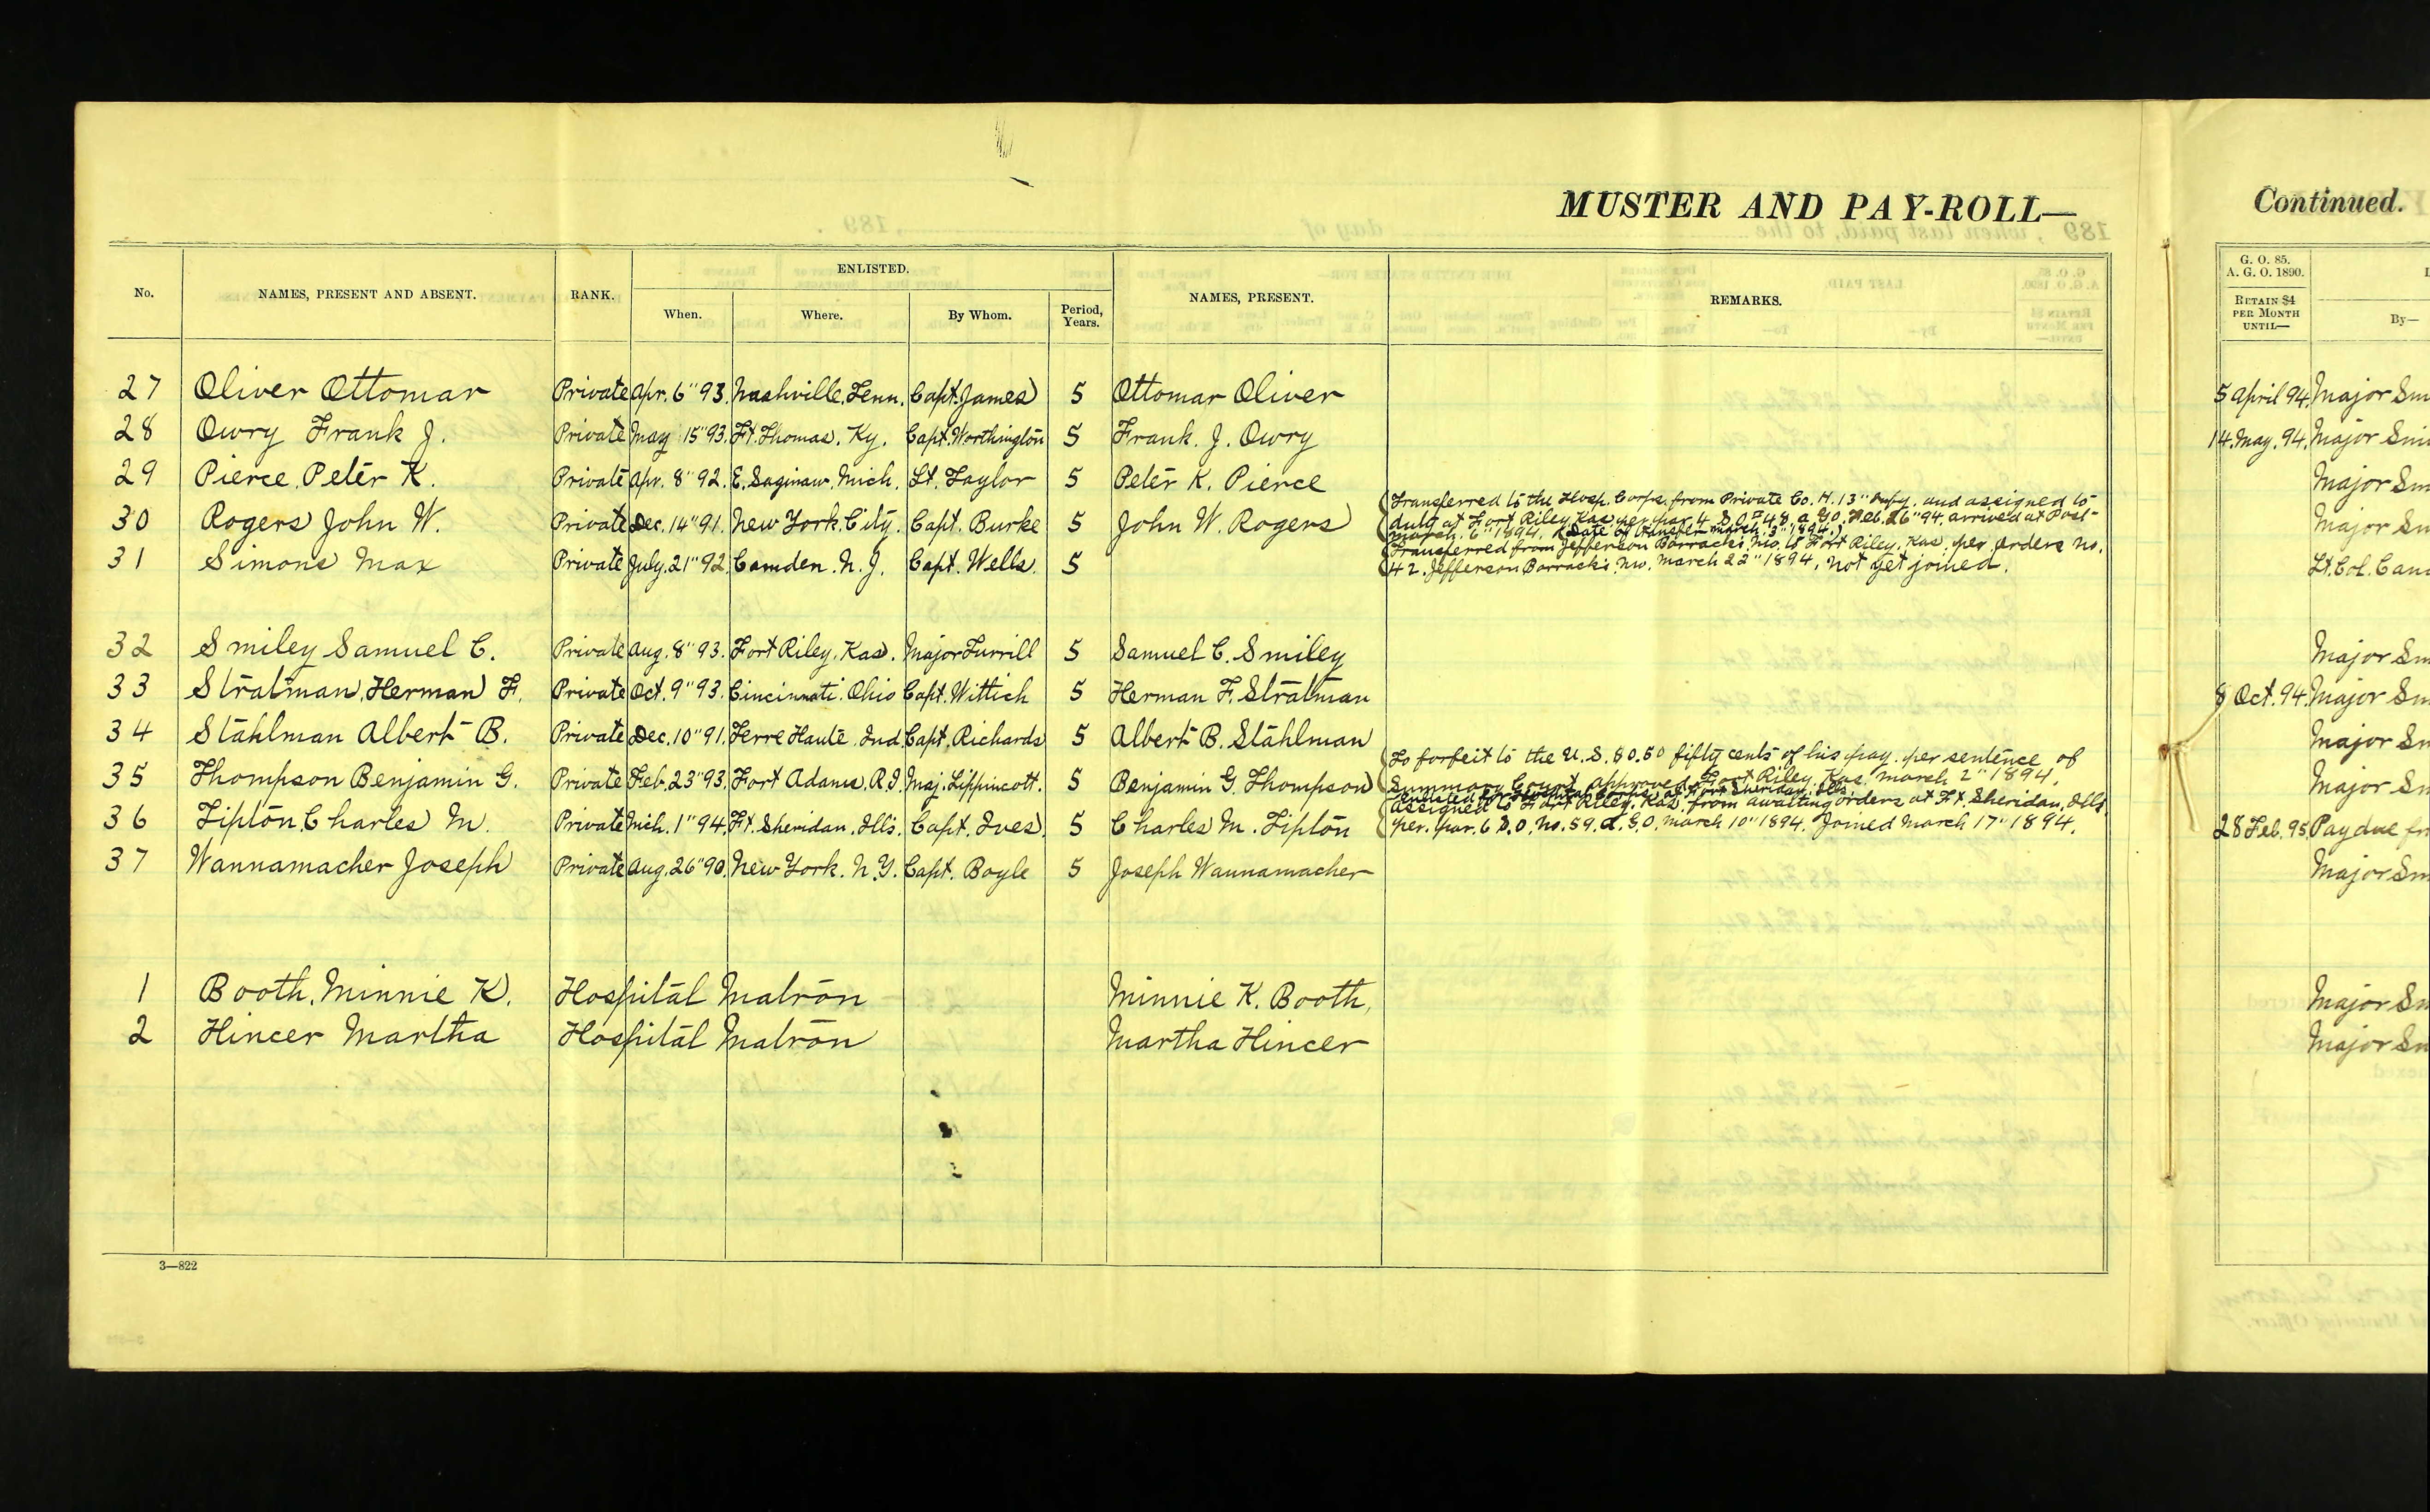 MUSTER AND PAY-ROLL— Continued.
No. NAMES, PRESENT AND ABSENT. RANK. ENLISTED. NAMES, PRESENT. REMARKS. G. O. 85. A. G. O. 1890.
When. Where. By Whom. Period, Years. RETAIN $4 PER MONTH UNTIL— By—
27 Oliver Ottomar Private Apr. 6" 93. Nashville, Tenn. Capt. James 5 Ottomar Oliver 5 April 94. Major Sm
28 Owry Frank J. Private May 15" 93. Ft. Thomas. Ky. Capt. Worthington 5 Frank. J. Owry 14. May. 94. Major Smi
29 Pierce, Peter K. Private Apr. 8" 92. E. Saginaw. Mich. Lt. Taylor 5 Peter K. Pierce Major Sm
Transferred to the Hosp. Corps. from Private Co. H. 13" Infy. and assigned to
30 Rogers John W. Private Dec. 14" 91. New York. City. Capt. Burke 5 John W. Rogers duty at Fort Riley Kas. per par. 4 S.O. 48 A.G.O. Feb. 26" 94. arrived at Post Major Sm
March. 6" 1894. (Date of transfer March. 3" 1894.)
Transferred from Jefferson Barracks Mo. to Fort Riley. Kas. per orders No.
31 Simons Max Private July. 21" 92 Camden. N. J. Capt. Wells. 5 42. Jefferson Barracks Mo. March 22" 1894, not yet joined. Lt. Col. Can
32 Smiley Samuel C. Private Aug. 8" 93. Fort Riley, Kas. Major Turrill 5 Samuel C. Smiley Major Sm
33 Stratman, Herman F. Private Oct. 9" 93. Cincinnati. Ohio Capt. Wittich 5 Herman F. Stratman 8 Oct. 94. Major Sm
34 Stahlman Albert B. Private Dec. 10" 91. Terre Haute. Ind Capt. Richards 5 Albert B. Stahlman Major Sm
To forfeit to the U.S. $0.50 fifty cents of his pay. per sentence of
35 Thompson Benjamin G. Private Feb. 23" 93. Fort Adams, R.I. Maj. Lippincott. 5 Benjamin G. Thompson Summary Court approved Fort Riley Kas. March 2" 1894. Major Sm
Enlisted for Hospital Corps at Fort Sheridan Ills.
assigned to Fort Riley. Kas. from awaiting orders at Ft. Sheridan, Ills
36 Tipton, Charles M. Private Mch. 1" 94. Ft. Sheridan. Ills. Capt. Ives. 5 Charles M. Tipton per. par. 6 S.O. No. 59. A.G.O. March 10" 1894. Joined March 17" 1894. 28 Feb. 95. Pay due fr
37 Wannamacher Joseph Private Aug. 26" 90. New York. N.Y. Capt. Boyle 5 Joseph Wannamacher Major Sm
1 Booth, Minnie K. Hospital Matron Minnie K. Booth, Major Sm
2 Hincer Martha Hospital Matron Martha Hincer Major Sm
3—822